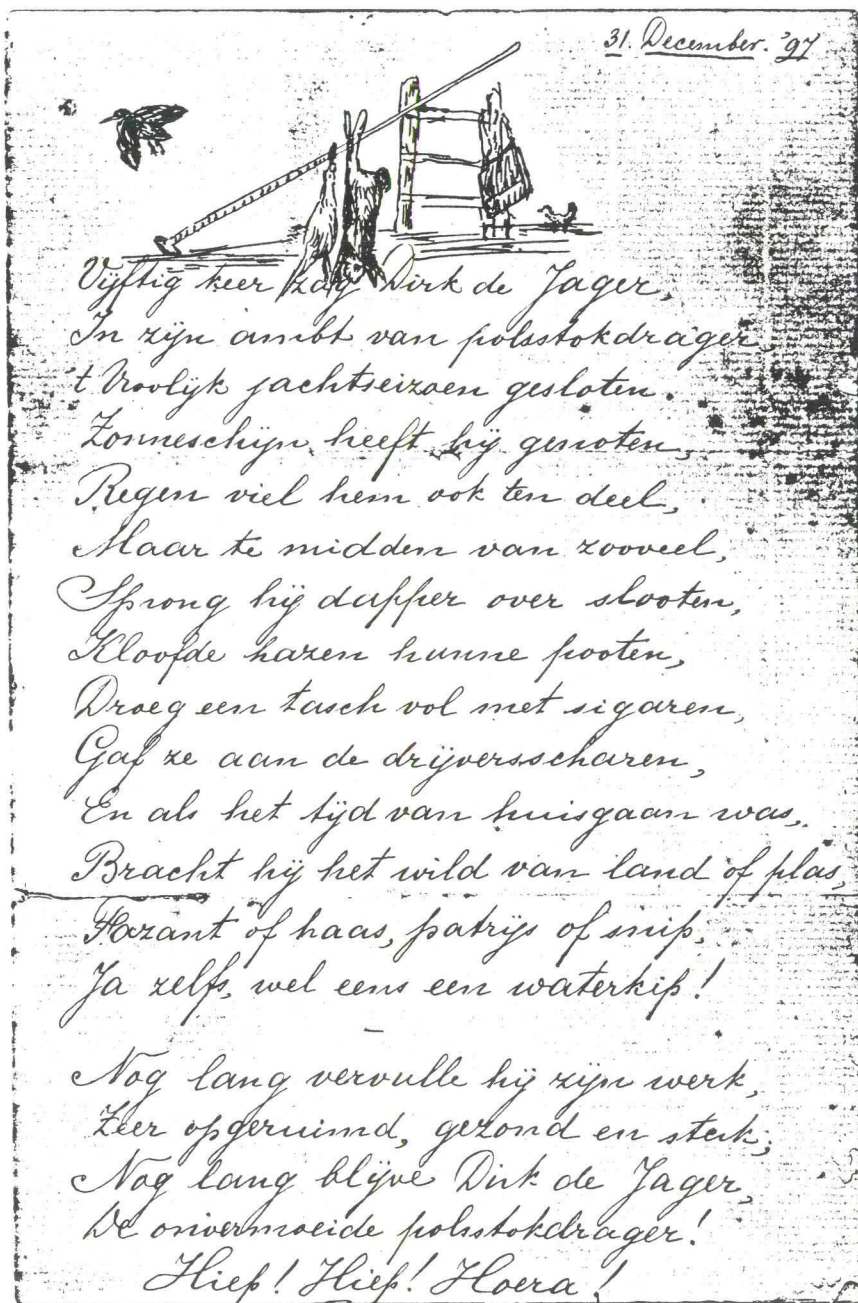 31. December. '97
Vijftig keer zag Dirk de Jager,
In zijn ambt van polsstokdrager
't Vroolijk jachtseizoen gesloten.
Zonneschijn heeft hij genoten,
Regen viel hem ook ten deel,
Maar te midden van zooveel,
Sprong hij dapper over slooten,
Kloofde hazen hunne pooten,
Droeg een tasch vol met sigaren,
Gaf ze aan de drijversscharen,
En als het tijd van huisgaan was,
Bracht hij het wild van land of plas,
Fazant of haas, patrijs of snip,
Ja zelfs, wel eens een waterkip!
Nog lang vervulle hij zijn werk,
Zeer opgeruimd, gezond en sterk;
Nog lang blijve Dirk de Jager,
De onvermoeide polsstokdrager!
Hiep! Hiep! Hoera!